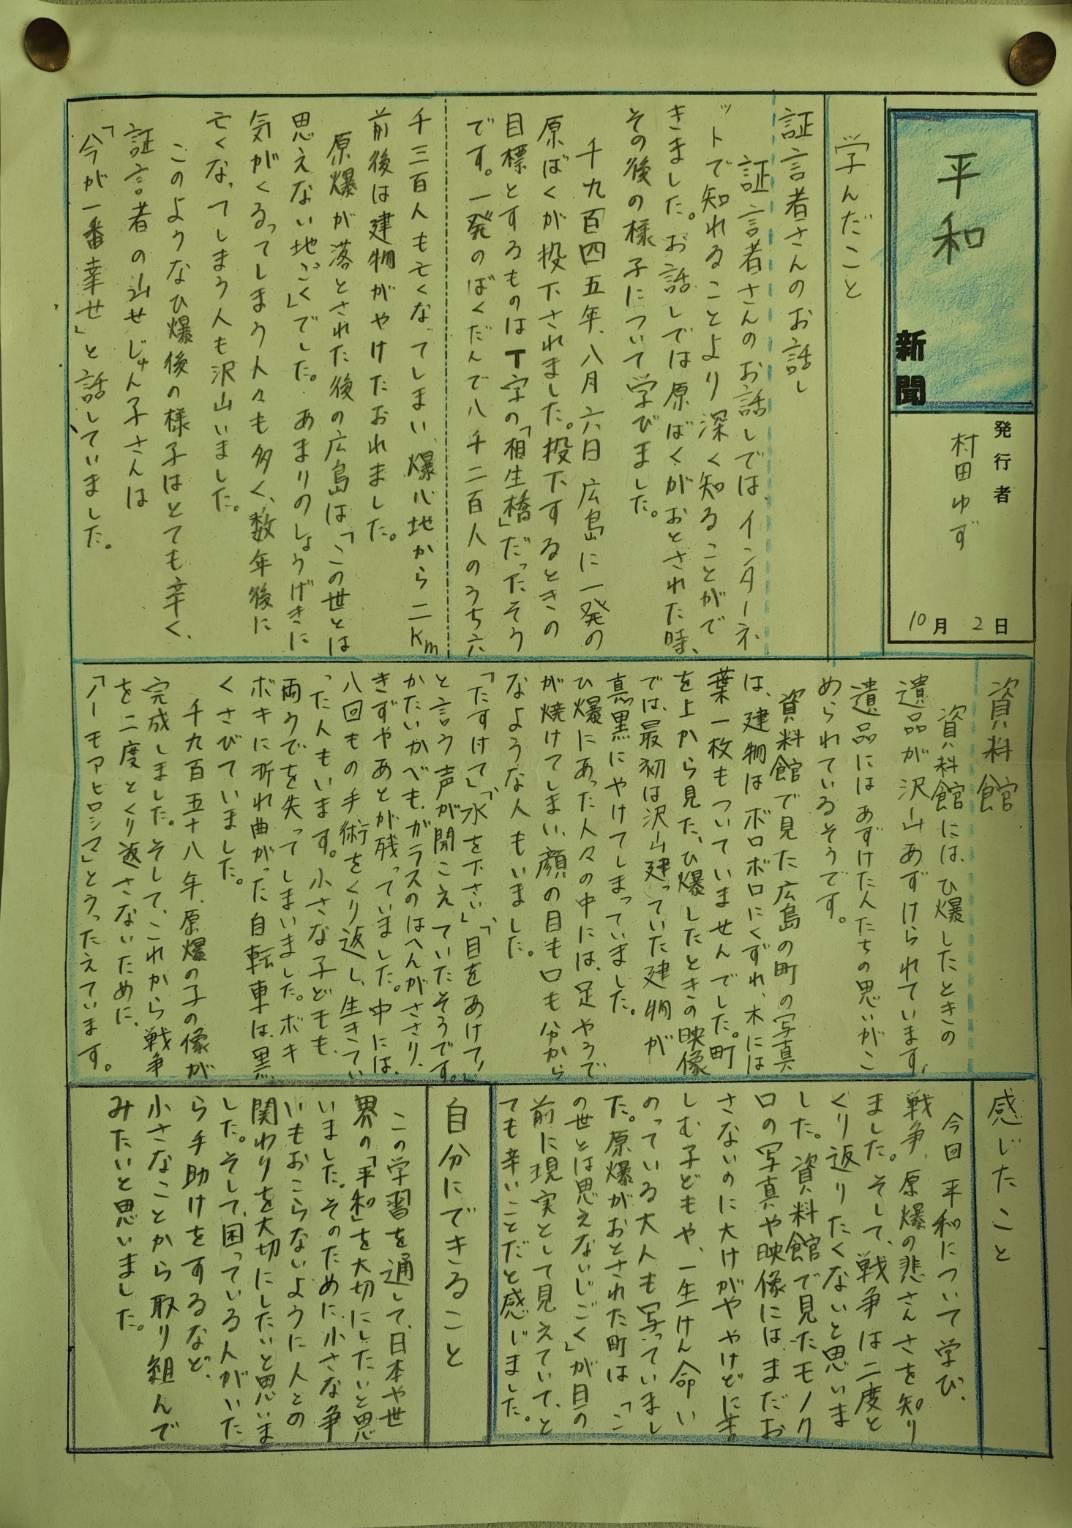 平和
新聞
発行者
村田ゆず
10月2日
学んだこと
証言者さんのお話し
証言者さんのお話しでは、インターネ
ットで知れることより深く知ることがで
きました。お話しでは原ばくがおとされた時、
その後の様子について学びました。
千九百四五年、八月六日広島に一発の
原ばくが投下されました。投下するときの
目標とするものはT字の「相生橋」だったそう
です。一発のばくだんで八千二百人のうち六
千三百人も亡くなってしまい、爆心地から二Km
前後は建物がやけたおれました。
原爆が落とされた後の広島は「この世とは
思えない地ごく」でした。あまりのしょうげきに
気がくるってしまう人々も多く、数年後に
亡くなってしまう人も沢山いました。
このようなひ爆後の様子はとても辛く、
証言者の山せじゅん子さんは
「今が一番幸せ」と話していました。
資料館
資料館には、ひ爆したときの
遺品が沢山あずけられています。
遺品にはあずけた人たちの思いがこ
められているそうです。
資料館で見た広島の町の写真
は、建物はボロボロにくずれ、木には
葉一枚もついていませんでした。町
を上から見た、ひ爆したときの映像
では、最初は沢山建っていた建物が
真黒にやけてしまっていました。
ひ爆にあった人々の中には、足やうで
が焼けてしまい、顔の目も口も分から
なようような人もいました。
「たすけて」「水を下さい」「目をあけて!」
と言う声が聞こえていたそうです。
かたいかべも、ガラスのはへんがささり、
きずやあとが残っていました。中には、
八回もの手術をくり返し、生きてい
った人もいます。小さな子どもも、
両うでを失ってしまいました。ボキ
ボキに折れ曲がった自転車は、黒
くさびていました。
千九百五十八年、原爆の子の像が
完成しました。そして、これから戦争
を二度とくり返さないために、
「ノーモアヒロシマ」とうったえています。
感じたこと
今回平和について学び、
戦争、原爆の悲さんさを知り
ました。そして、戦争は二度と
くり返りたくないと思いま
した。資料館で見たモノク
ロの写真や映像には、まだお
さないのに大けがややけどに苦
しむ子どもや、一生けん命い
のっている大人も写っていまし
た。原爆がおとされた町は「こ
の世とは思えないじごく」が目の
前に現実として見えていて、と
ても辛いことだと感じました。
自分にできること
この学習を通して、日本や世
界の「平和」を大切にしたいと思
いました。そのために、小さな争
いもおこらないように人との
関わりを大切にしたいと思いま
した。そして、困っている人がいた
ら手助けをするなど、
小さなことから取り組んで
みたいと思いました。